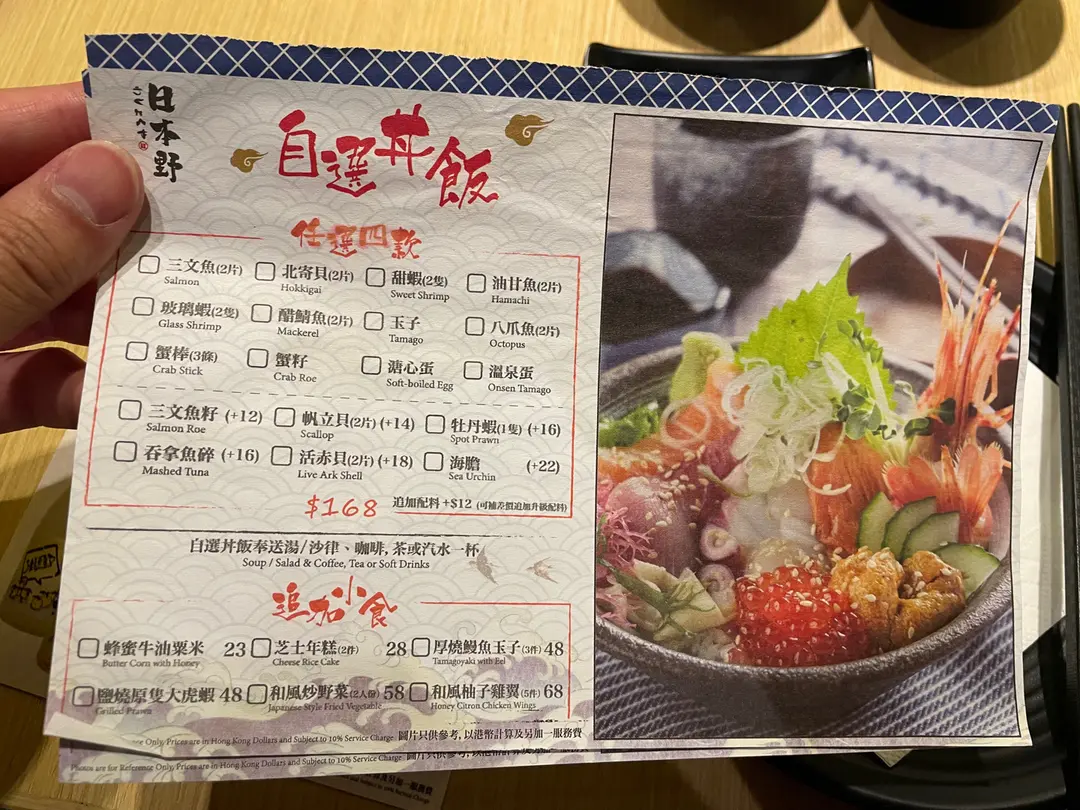 日本野
自選丼飯
任選四款
三文魚(2片) 北寄貝(2片) 甜蝦(2隻) 油甘魚(2片)
Salmon Hokkigai Sweet Shrimp Hamachi
玻璃蝦(2隻) 醋鯖魚(2片) 玉子 八爪魚(2片)
Glass Shrimp Mackerel Tamago Octopus
蟹棒(3條) 蟹籽 溏心蛋 溫泉蛋
Crab Stick Crab Roe Soft-boiled Egg Onsen Tamago
三文魚籽 (+12) 帆立貝(2片) (+14) 牡丹蝦(1隻) (+16)
Salmon Roe Scallop Spot Prawn
吞拿魚碎 (+16) 活赤貝(2片) (+18) 海膽 (+22)
Mashed Tuna Live Ark Shell Sea Urchin
$168 追加配料 +$12 (可補差價追加升級配料)
自選丼飯奉送湯/沙律、咖啡, 茶或汽水一杯
Soup / Salad & Coffee, Tea or Soft Drinks
追加小食
蜂蜜牛油粟米 23 芝士年糕(2件) 28 厚燒鰻魚玉子(3件) 48
Butter Corn with Honey Cheese Rice Cake Tamagoyaki with Eel
鹽燒原隻大虎蝦 48 和風炒野菜(2人份) 58 和風柚子雞翼(5件) 68
Grilled Prawn Japanese Style Fried Vegetable Honey Citron Chicken Wings
Reference Only, Prices are in Hong Kong Dollars and Subject to 10% Service Charge 圖片只供參考, 以港幣計算及另加一服務費
Photos are for Reference Only, Prices are in Hong Kong Dollars and Subject to 10% Service Charge